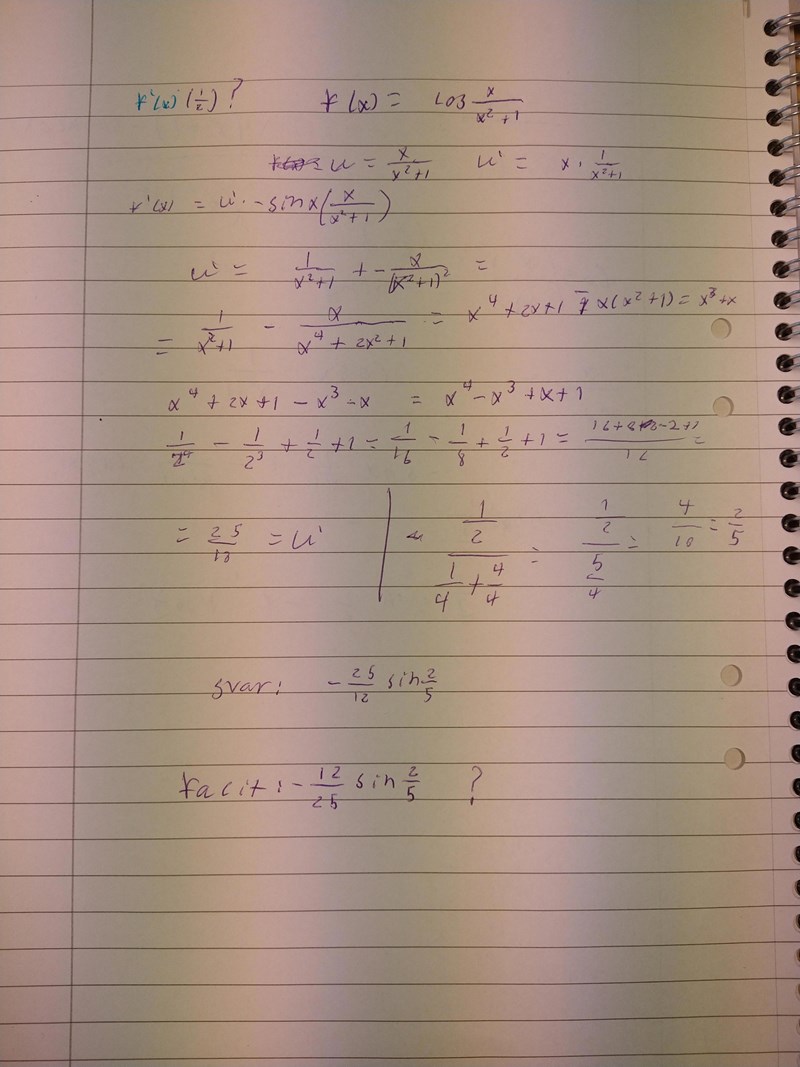 f'(x) (1/2)? f(x) = cos x/(x²+1)
u = x/(x²+1) u' = x · 1/(x²+1)
f'(x) = u' · -sin x (x/(x²+1))
u' = 1/(x²+1) + - x/(x²+1)² =
= 1/(x²+1) - x/(x⁴ + 2x² + 1) = x⁴ + 2x + 1 - x(x²+1) = x³ + x
x⁴ + 2x + 1 - x³ - x = x⁴ - x³ + x + 1
1/2⁴ - 1/2³ + 1/2 + 1 = 1/16 - 1/8 + 1/2 + 1 =
= 25/12 = u' | (1/2)/(1/4 + 4/4) = (1/2)/(5/4) = 4/10 = 2/5
svar: - 25/12 sin 2/5
Facit: - 12/25 sin 2/5 ?